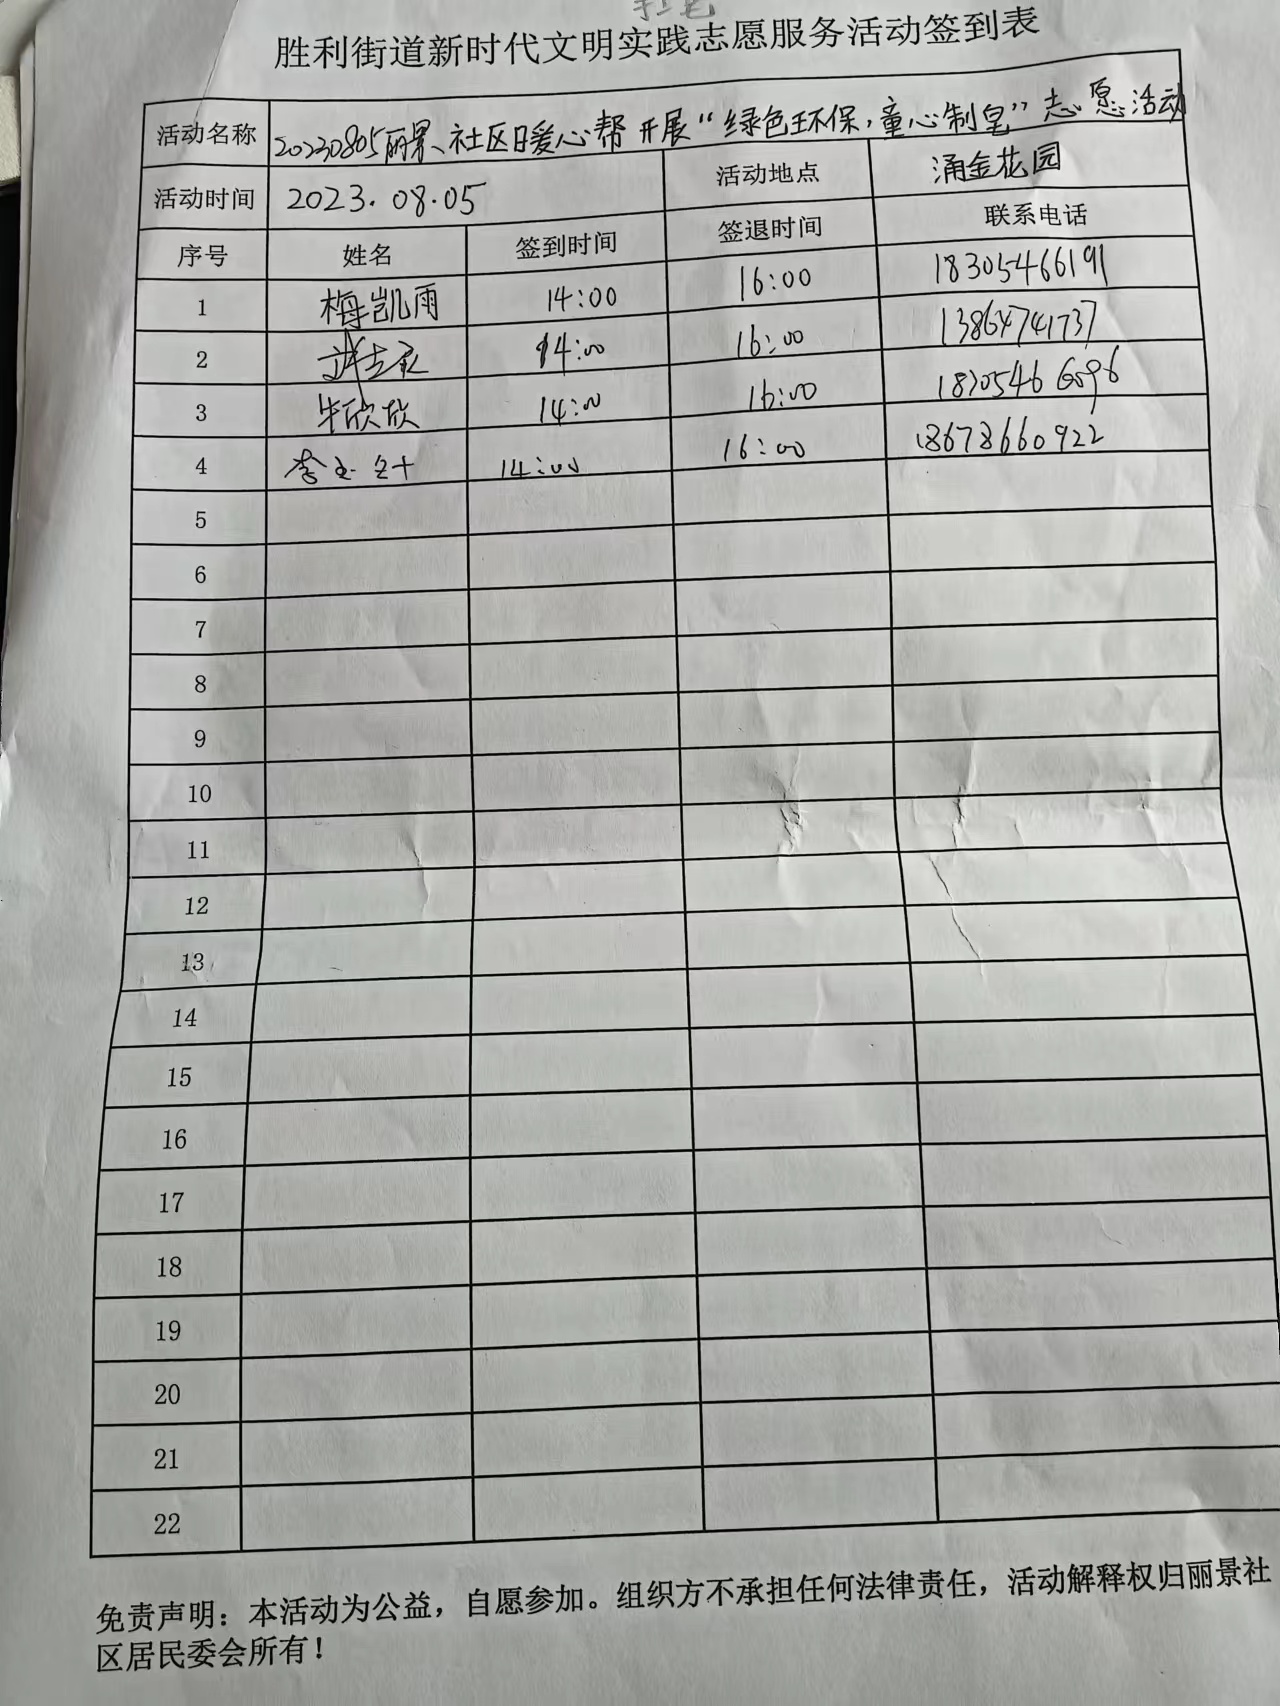 胜利街道新时代文明实践志愿服务活动签到表
活动名称 20230805丽景社区暖心帮开展“绿色环保,童心制皂”志愿活动
活动时间 2023.08.05 活动地点 涌金花园
序号 姓名 签到时间 签退时间 联系电话
1 梅凯雨 14:00 16:00 18305466191
2 14:00 16:00 13864741737
3 牛欣欣 14:00 16:00 18205466096
4 14:00 16:00 18678660922
5
6
7
8
9
10
11
12
13
14
15
16
17
18
19
20
21
22
免责声明：本活动为公益，自愿参加。组织方不承担任何法律责任，活动解释权归丽景社
区居民委会所有！